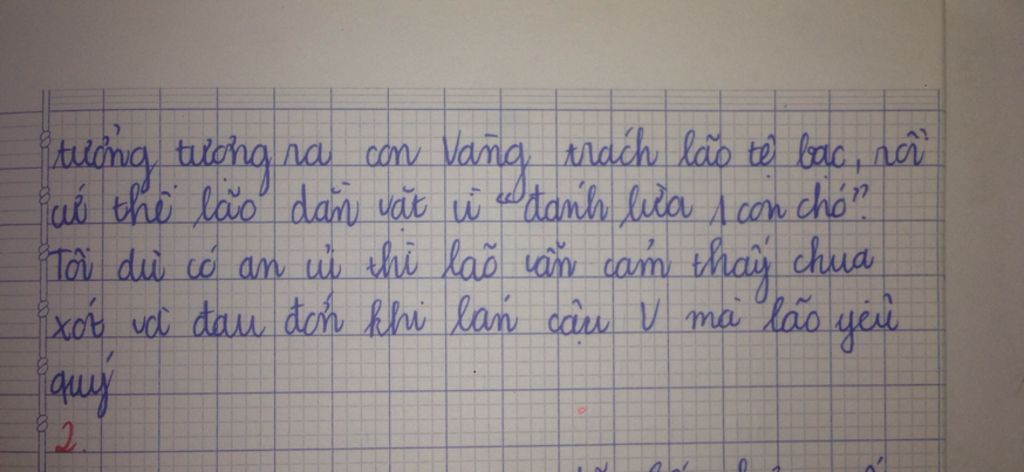 tưởng tượng ra con Vàng trách lão tệ bạc, rồi
cứ thế lão dằn vặt vì "đánh lừa 1 con chó".
Tôi dù có an ủi thì lão vẫn cảm thấy chua
xót và đau đớn khi bán cậu V mà lão yêu
quý
2.